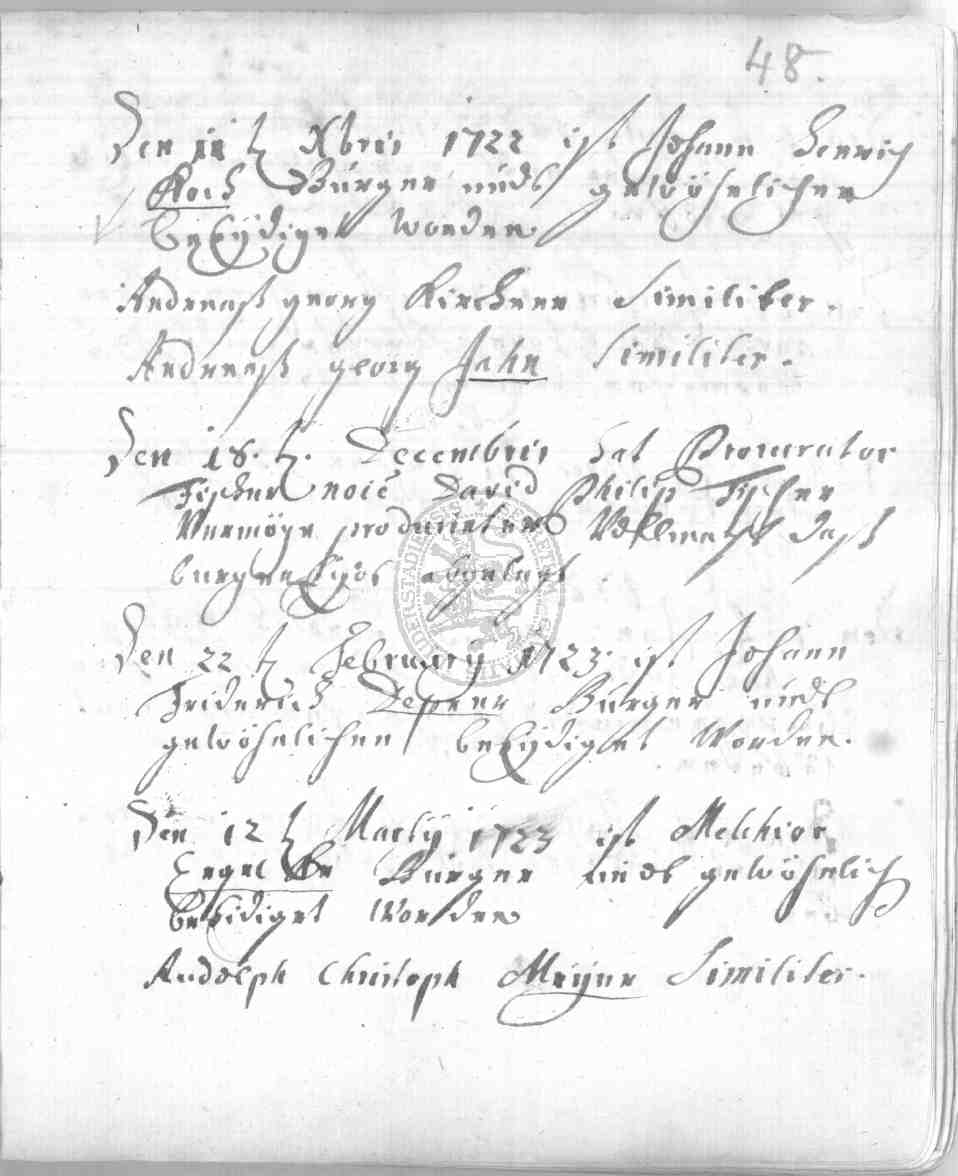 48.
Den 11 t Xbris 1722 ist Johann Henrich
Koch Bürger undt gewöhnlicher
beeÿdiget worden
Andreaß georg Kirchner Similiter.
Andreaß georg Jahn Similiter.
Den 18. t. Decembris hat Procurator
Fischer noïe David Philip Fischer
Vermöge producirter Vollmacht daß
burger
Den 22 t February 1723. ist Johann
Friderich Bürger undt
gewöhnlichen beeÿdiget Worden.
Den 12 t Martÿ 1723 ist Melchior
Engel Bürger undt gewöhnlich
beeidiget Worden
Christoph Meÿer Similiter.